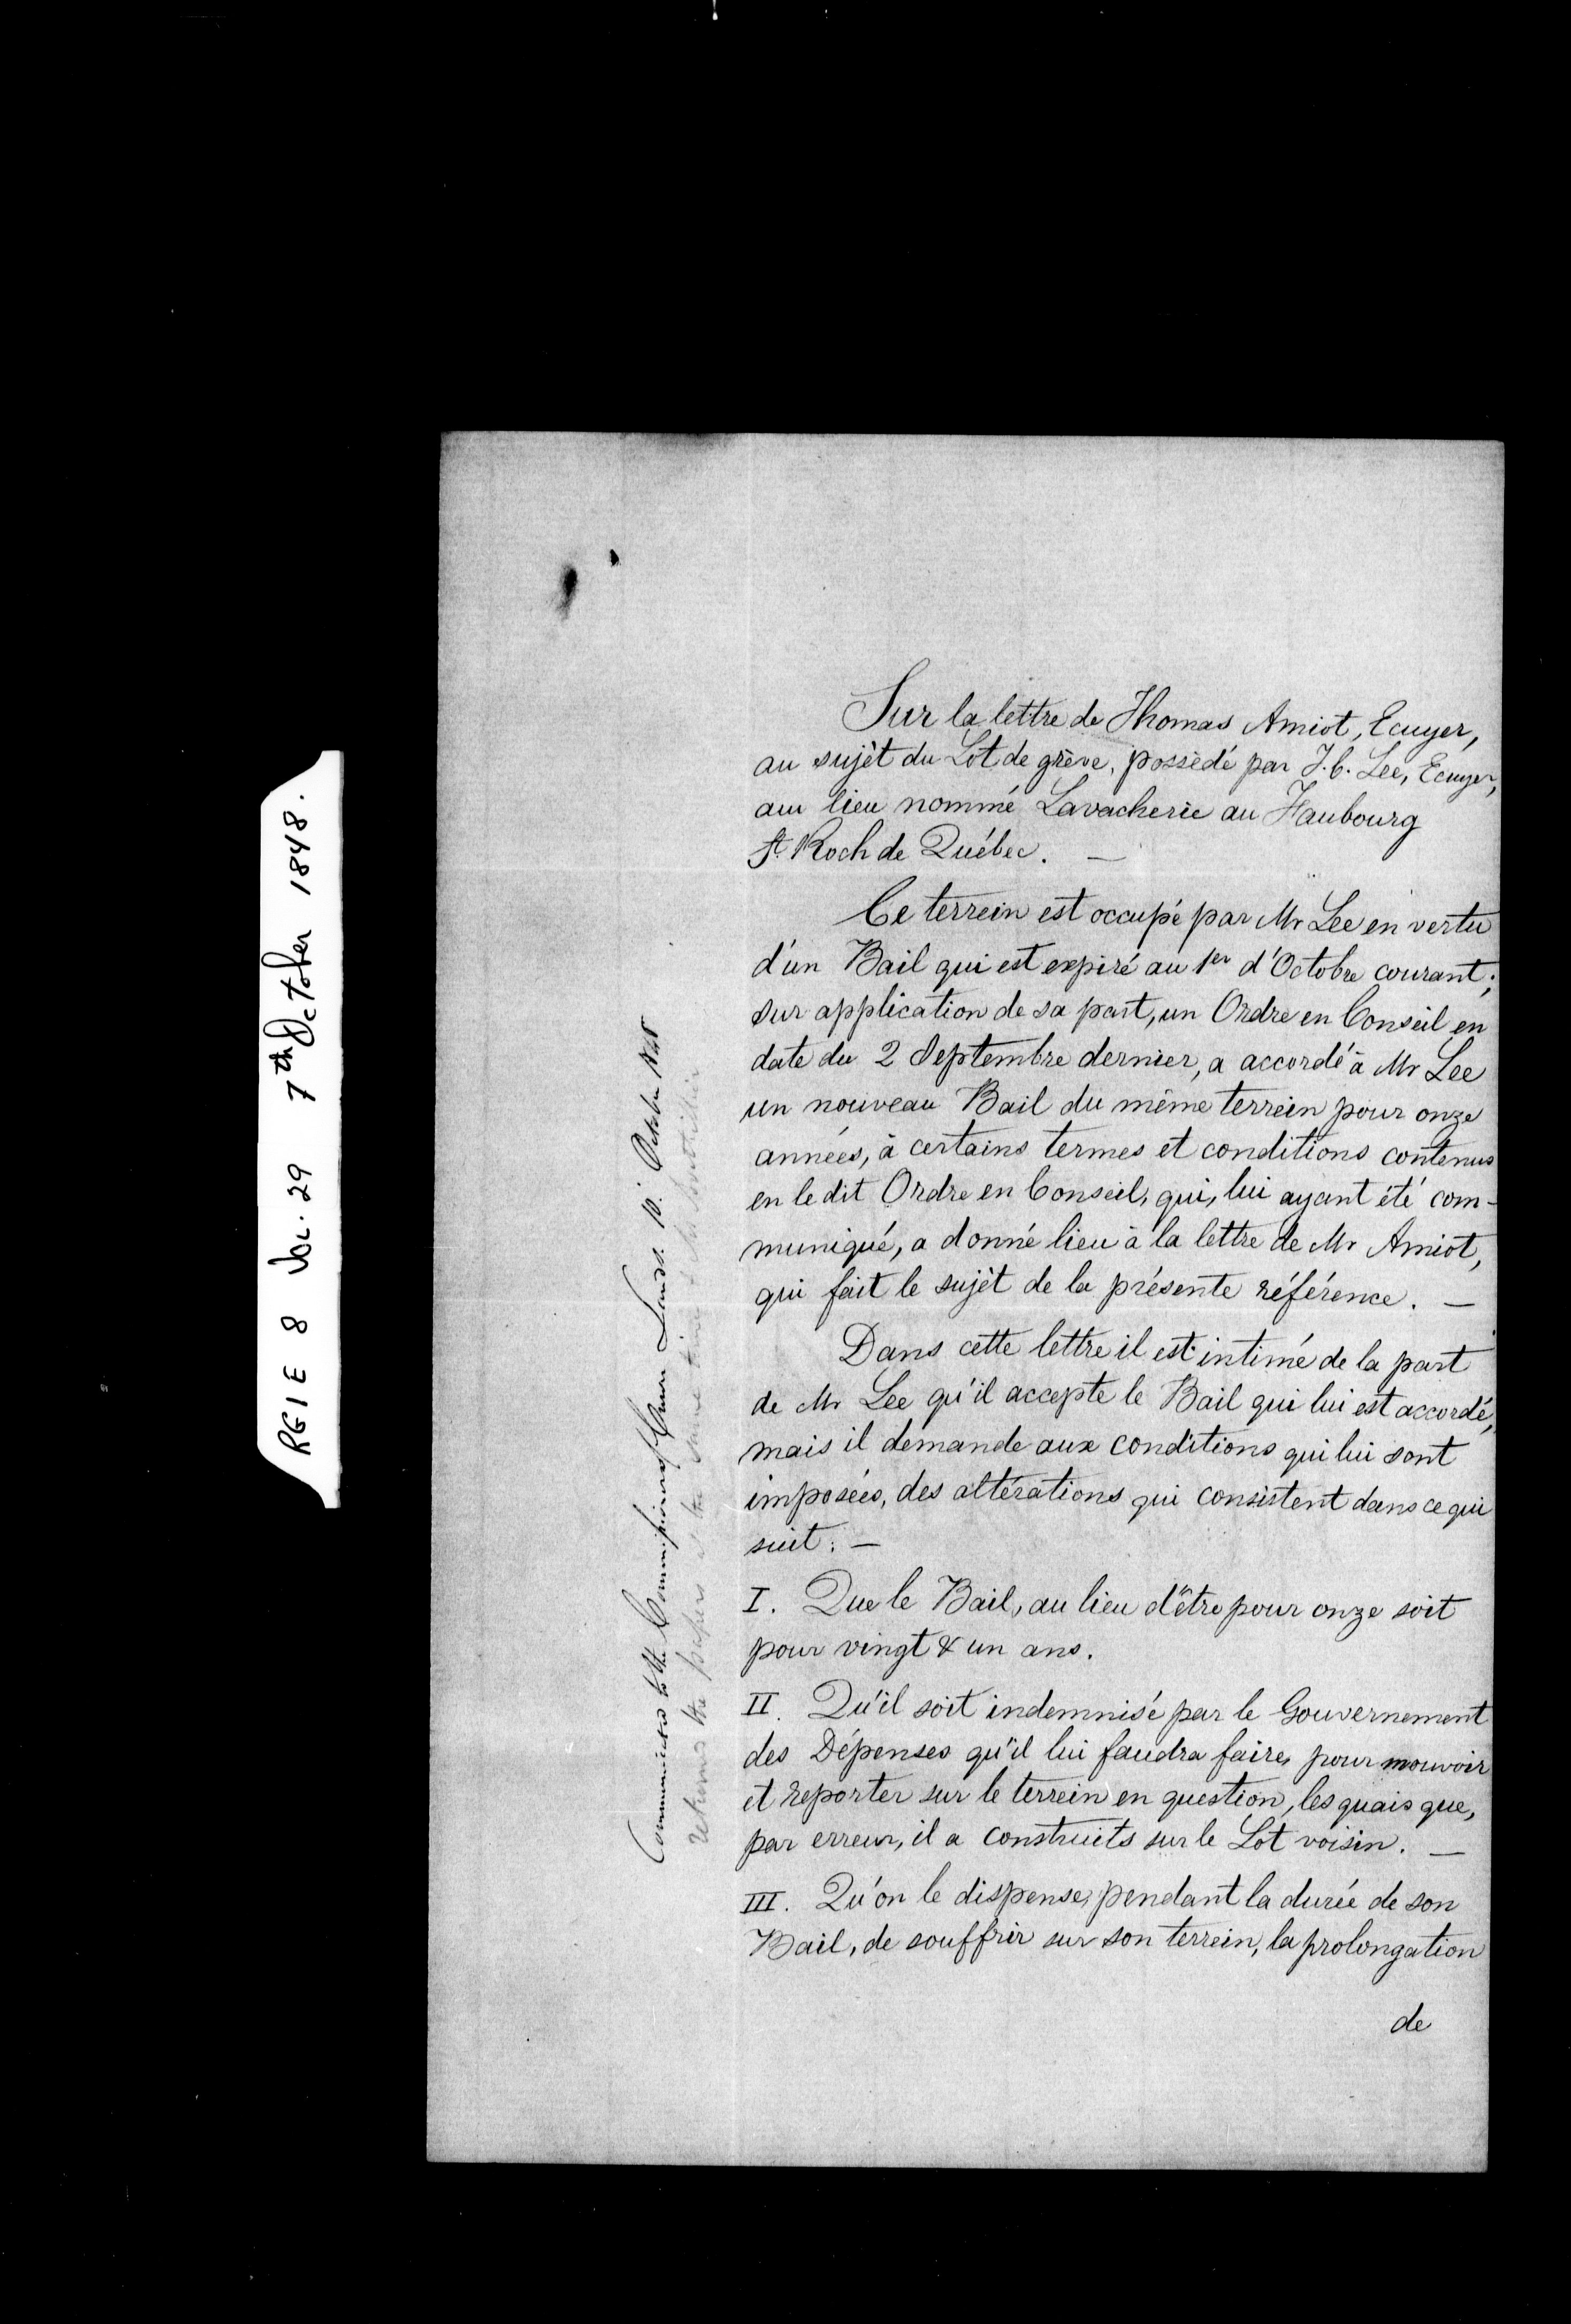 RG1 E 8 Vol. 29 7th October 1848.
Communicated to the Commissioner of Crown Lands 10. October 1848
returned the papers at the same time
Sur la lettre de Thomas Amiot, Ecuyer,
au sujèt du Lot de grève, possèdé par J. C. Lee, Ecuyer,
au lieu nommé Lavacherie au Faubourg
St. Roch de Québec. —
Ce terrein est occupé par Mr Lee en vertu
d'un Bail qui est expiré au 1er d'Octobre courant;
sur application de sa part, un Ordre en Conseil en
date du 2 Septembre dernier, a accordé à Mr Lee
un nouveau Bail du même terrein pour onze
années, à certains termes et conditions contenus
en le dit Ordre en Conseil, qui, lui ayant été com-
muniqué, a donné lieu à la lettre de Mr Amiot,
qui fait le sujèt de la présente référence. —
Dans cette lettre il est intimé de la part
de Mr Lee qu'il accepte le Bail qui lui est accordé,
mais il demande aux conditions qui lui sont
imposées, des altérations qui consistent dans ce qui
suit: —
I. Que le Bail, au lieu d'être pour onze soit
pour vingt & un ans.
II. Qu'il soit indemnisé par le Gouvernement
des Dépenses qu'il lui faudra faire, pour mouvoir
et reporter sur le terrein en question, les quais que,
par erreur, il a construits sur le Lot voisin. —
III. Qu'on le dispense, pendant la durée de son
Bail, de souffrir sur son terrein, la prolongation
de